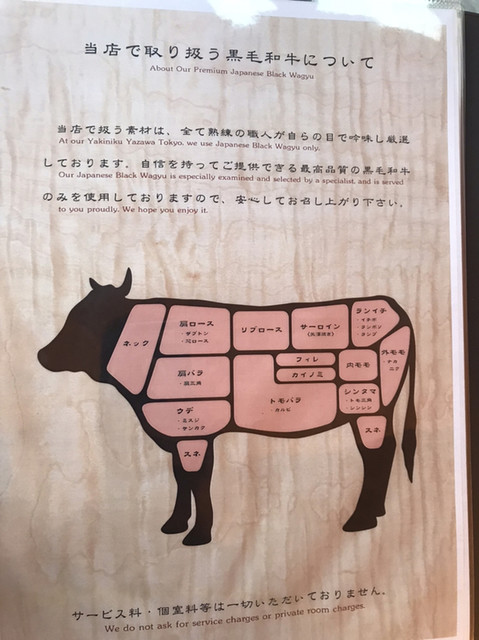 当店で取り扱う黒毛和牛について
About Our Premium Japanese Black Wagyu
当店で扱う素材は、全て熟練の職人が自らの目で吟味し厳選
At our Yakiniku Yazawa Tokyo, we use Japanese Black Wagyu only.
しております。自信を持ってご提供できる最高品質の黒毛和牛
Our Japanese Black Wagyu is especially examined and selected by a specialist, and is served
のみを使用しておりますので、安心してお召し上がり下さい。
to you proudly. We hope you enjoy it.
ネック
肩ロース
・ザブトン
・芯ロース
リブロース
サーロイン
ランイチ
・イチボ
・ランボソ
・ランプ
肩バラ
・肩三角
フィレ
カイノミ
内モモ
外モモ
トモバラ
・カルビ
シンタマ
・トモ三角
・シンシン
ウデ
・ミスジ
・サンカク
スネ
スネ
サービス料・個室料等は一切いただいておりません。
We do not ask for service charges or private room charges.